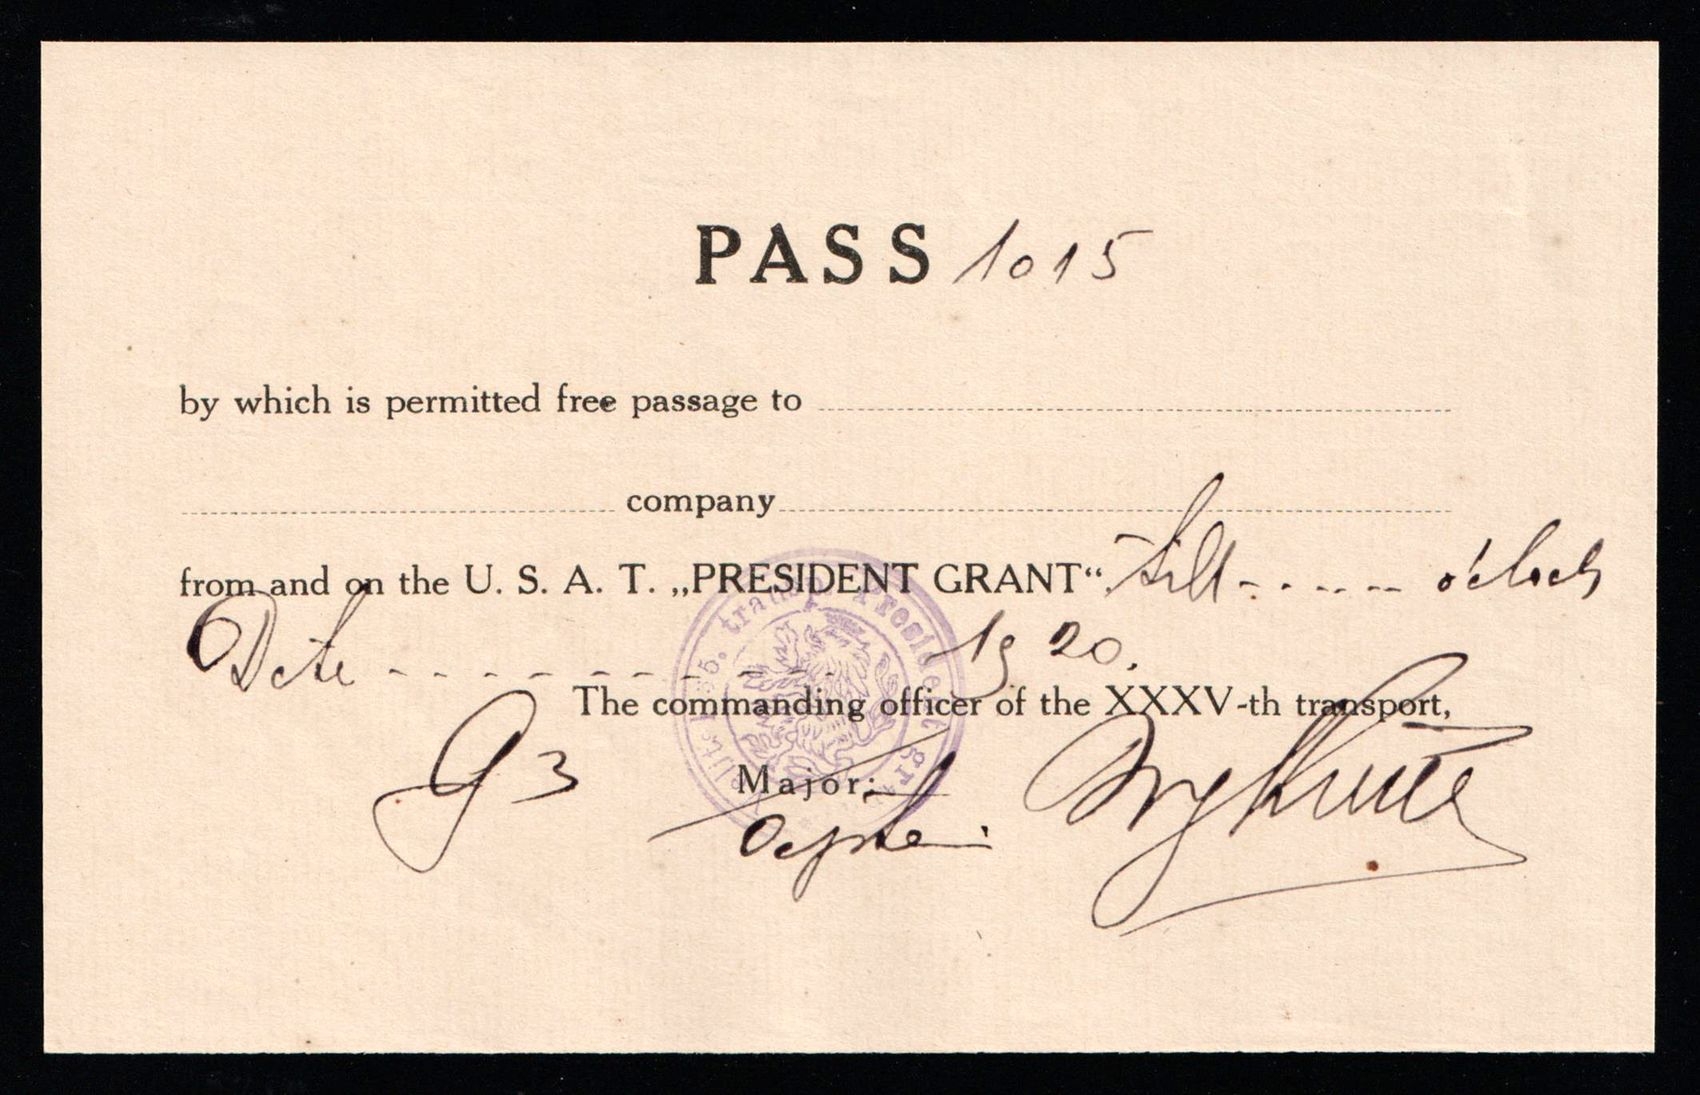 PASS 1015
by which is permitted free passage to
company
from and on the U. S. A. T. „PRESIDENT GRANT“ till ------ o'clock
Date ---------- 1920.
The commanding officer of the XXXV-th transport,
Major: